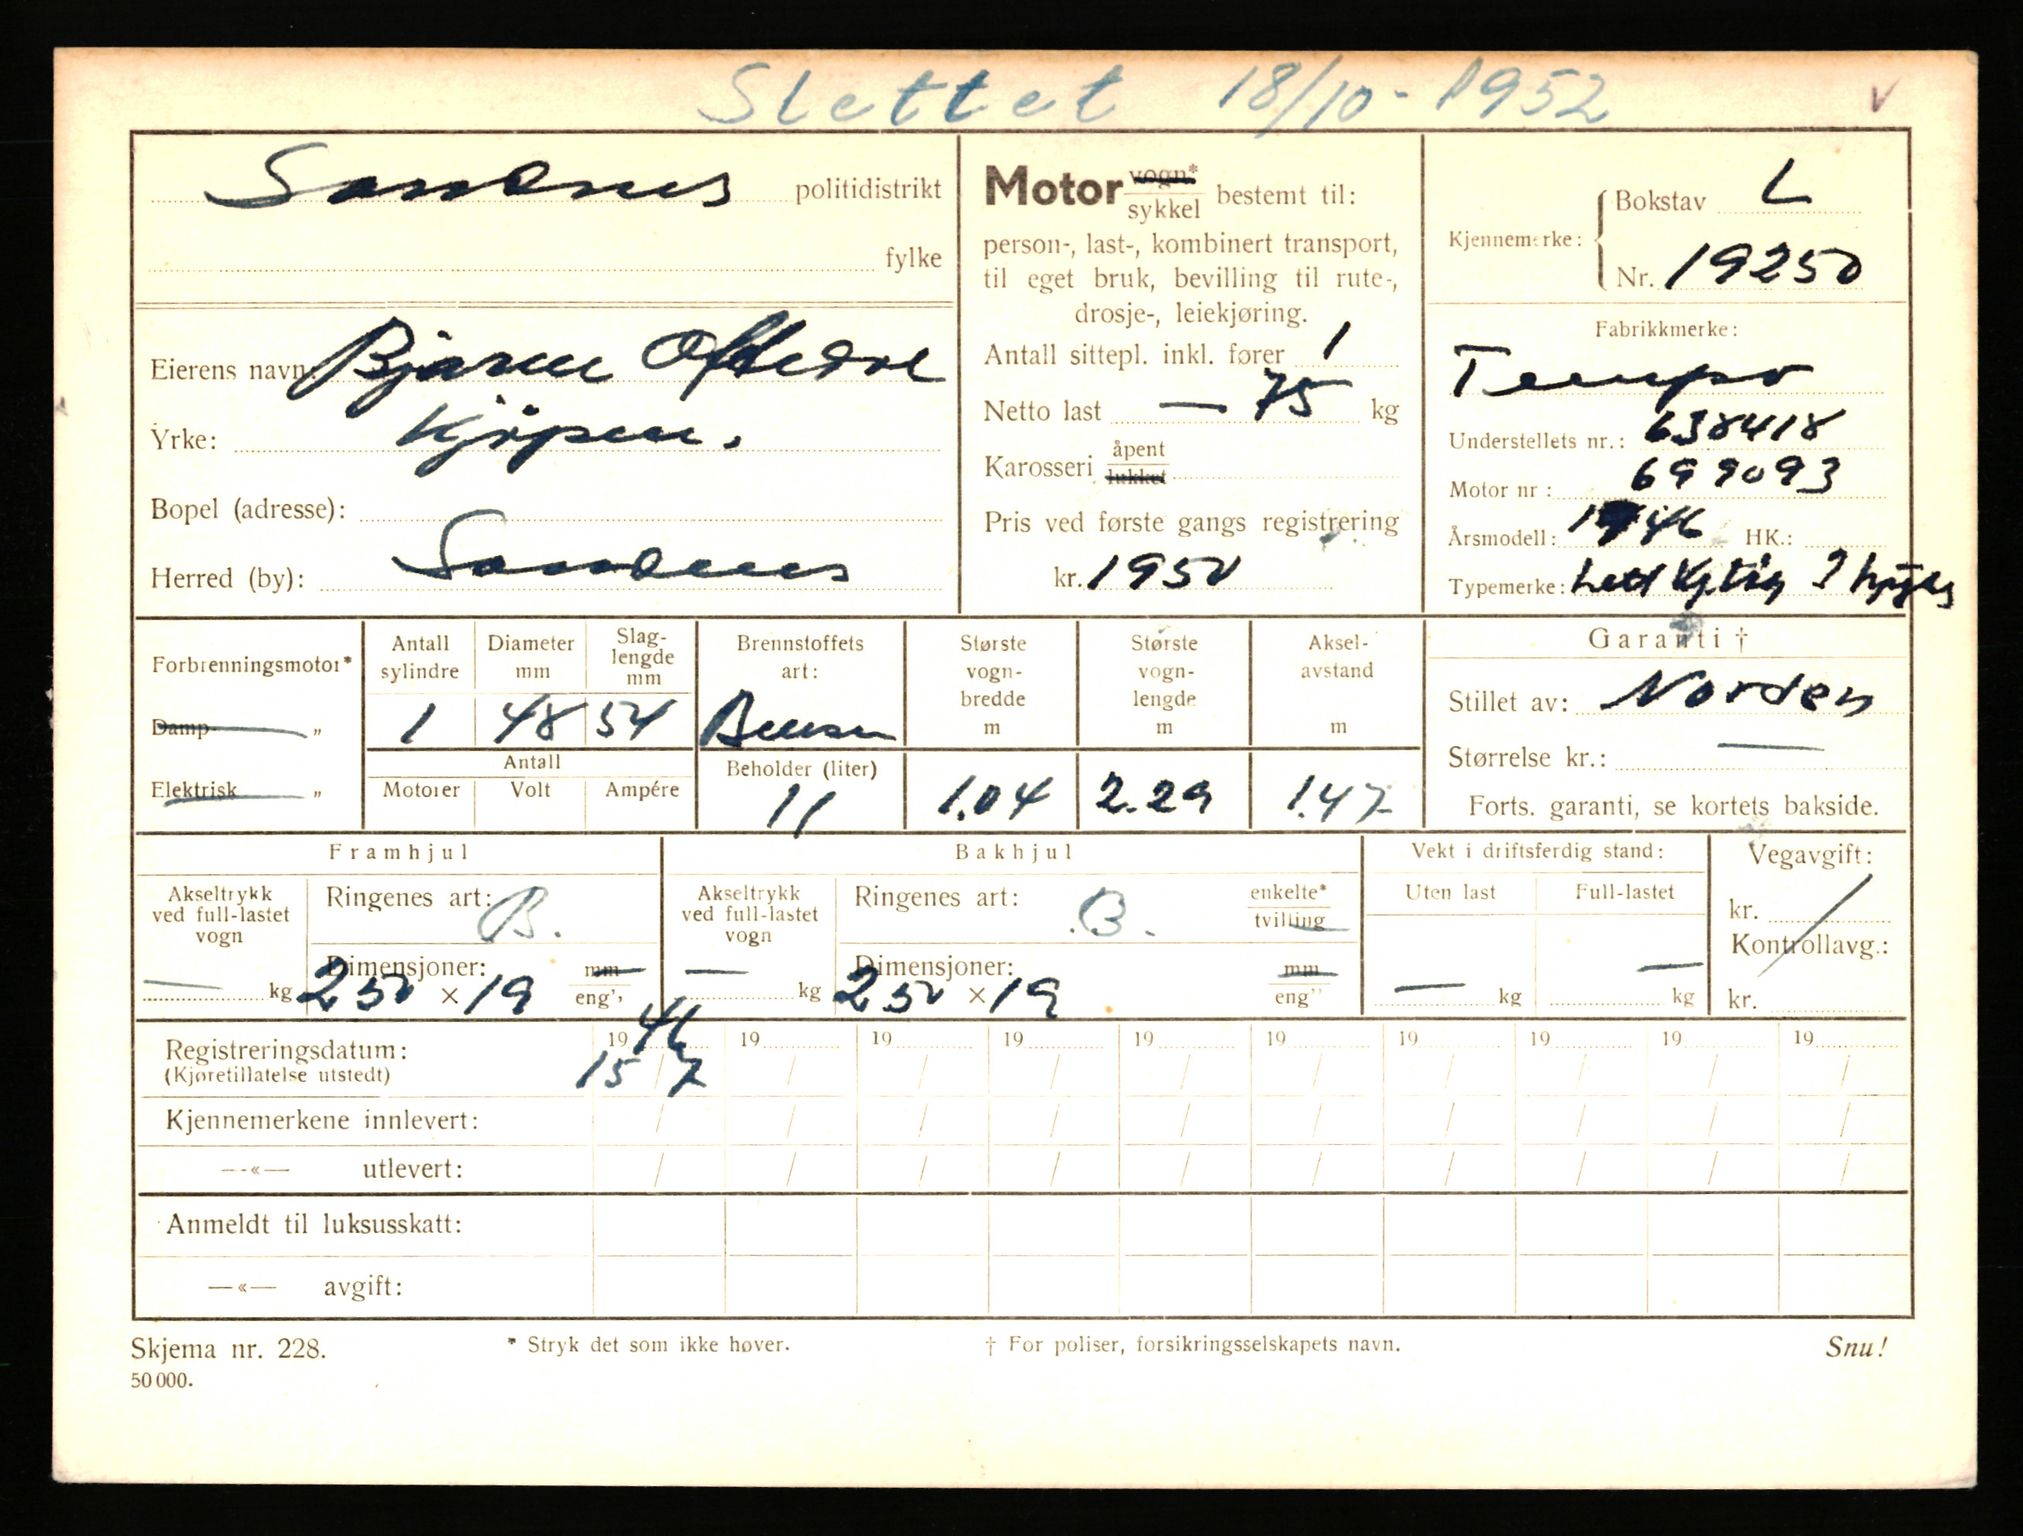 Slettet 18/10-1952
Sandnes politidistrikt
fylke
Eierens navn: Bjarne Oftedal
Yrke:
Bopel (adresse):
Herred (by): Sandnes
Motor vogn*
sykkel bestemt til:
person-, last-, kombinert transport,
til eget bruk, bevilling til rute-,
drosje-, leiekjøring.
Antall sittepl. inkl. fører 1
Netto last — 75 kg
Karosseri åpent
lukket
Pris ved første gangs registrering
kr. 1950
Kjennemerke: Bokstav L
Nr. 19250
Fabrikkmerke:
Tempo
Understellets nr.: 638418
Motor nr: 699093
Årsmodell: 1946 HK.:
Typemerke: Lett
Forbrenningsmotor*
Damp „
Elektrisk „
Antall sylindre
1
Diameter mm
48
Slag-
lengde
mm
54
Antall
Motorer Volt Ampére
Brennstoffets
art:
Bensin
Beholder (liter)
11
Største
vogn-
bredde
m
1.04
Største
vogn-
lengde
m
2.29
Aksel-
avstand
m
1.47
Garanti †
Stillet av: Norden
Størrelse kr.: —
Forts. garanti, se kortets bakside.
Framhjul
Akseltrykk
ved full-lastet
vogn
— kg
Ringenes art: B.
Dimensjoner: mm
250 × 19 eng''
Bakhjul
Akseltrykk
ved full-lastet
vogn
— kg
Ringenes art: B. enkelte*
tvilling
Dimensjoner: mm
250 × 19 eng''
Vekt i driftsferdig stand:
Uten last Full-lastet
— kg — kg
Vegavgift:
kr.
Kontrollavg.:
kr.
Registreringsdatum: 1946 19 19 19 19 19 19 19 19 19
(Kjøretillatelse utstedt) 15/7 / / / / / / / / /
Kjennemerkene innlevert: / / / / / / / / / /
—«— utlevert: / / / / / / / / / /
Anmeldt til luksusskatt:
—«— avgift:
Skjema nr. 228. * Stryk det som ikke høver. † For poliser, forsikringsselskapets navn. Snu!
50 000.